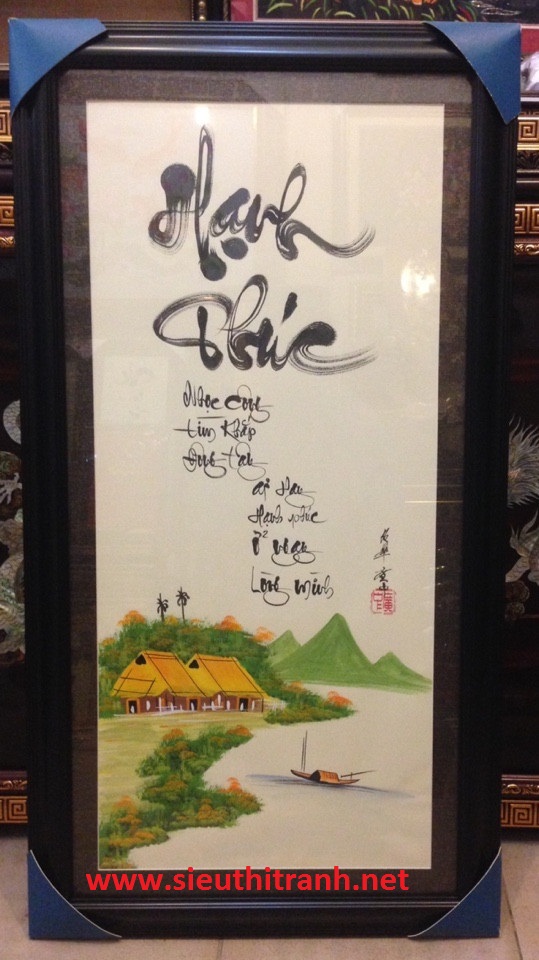 Hạnh
Phúc
Nhọc công
tìm khắp
Đông Tây
ai hay
Hạnh phúc
ở ngay
Lòng mình
www.sieuthitranh.net